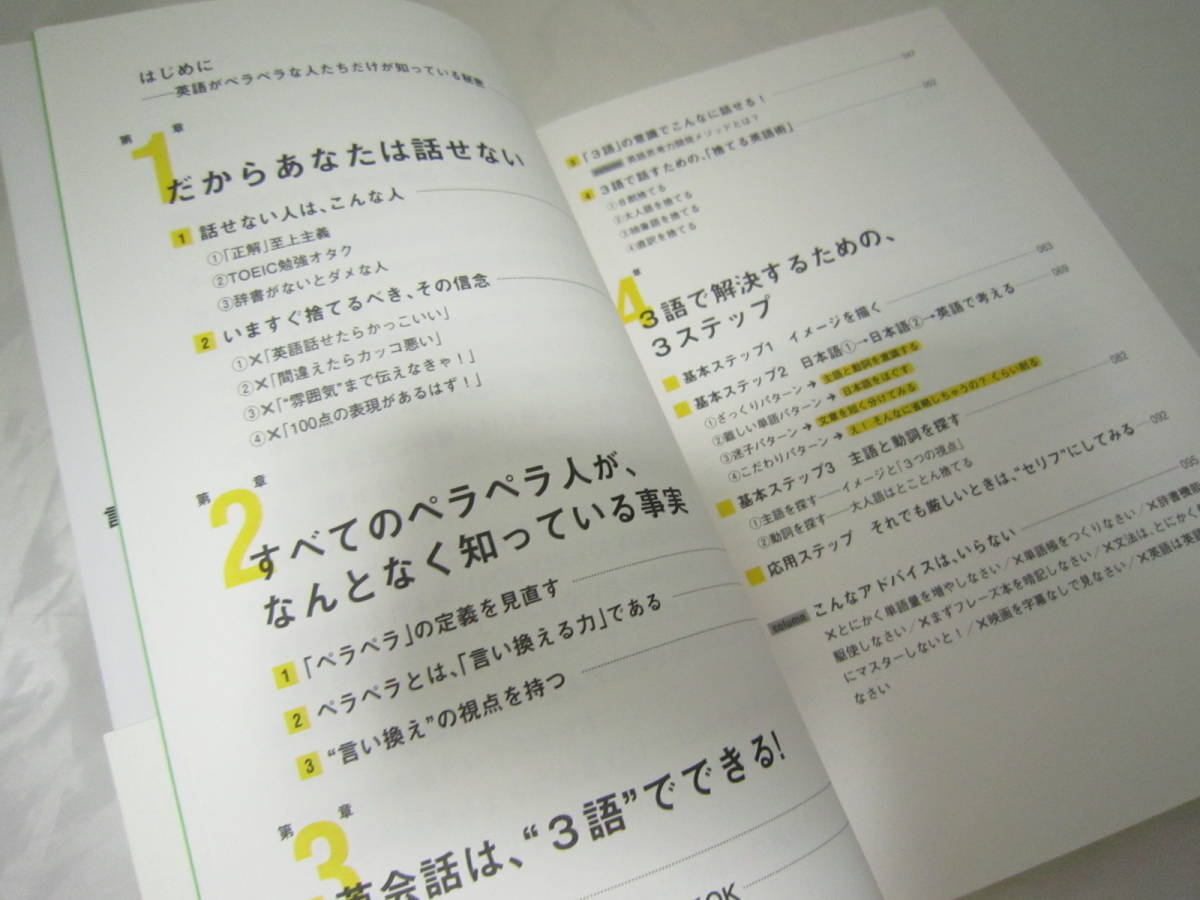 はじめに
――英語がペラペラな人たちだけが知っている秘密
第1章
だからあなたは話せない
1 話せない人は、こんな人
①「正解」至上主義
②TOEIC勉強オタク
③辞書がないとダメな人
2 いますぐ捨てるべき、その信念
①×「英語話せたらかっこいい」
②×「間違えたらカッコ悪い」
③×「“雰囲気”まで伝えなきゃ!」
④×「100点の表現があるはず!」
第2章
すべてのペラペラ人が、
なんとなく知っている事実
1 「ペラペラ」の定義を見直す
2 ペラペラとは、「言い換える力」である
3 “言い換え”の視点を持つ
第3章
英会話は、“3語”でできる!
OK
3 「3語」の意識でこんなに話せる! 047
column 英語思考力開発メソッドとは?
4 3語で話すための、「捨てる英語術」 052
①8割捨てる
②大人語を捨てる
③抽象語を捨てる
④直訳を捨てる
4章
3語で解決するための、
3ステップ
基本ステップ1 イメージを描く 063
基本ステップ2 日本語①→日本語②→英語で考える 069
①ざっくりパターン→主語と動詞を意識する
②難しい単語パターン→日本語をほぐす
③迷子パターン→文章を短く分けてみる
④こだわりパターン→え! そんなに省略しちゃうの? くらい削る
基本ステップ3 主語と動詞を探す 082
①主語を探す――イメージと「3つの視点」
②動詞を探す――大人語はとことん捨てる
応用ステップ それでも厳しいときは、“セリフ”にしてみる 092
column こんなアドバイスは、いらない 095
×とにかく単語量を増やしなさい/×単語帳をつくりなさい/×辞書機能
駆使しなさい/×まずフレーズ本を暗記しなさい/×文法は、とにかく
にマスターしないと!/×映画を字幕なしで見なさい/×英語は英
なさい